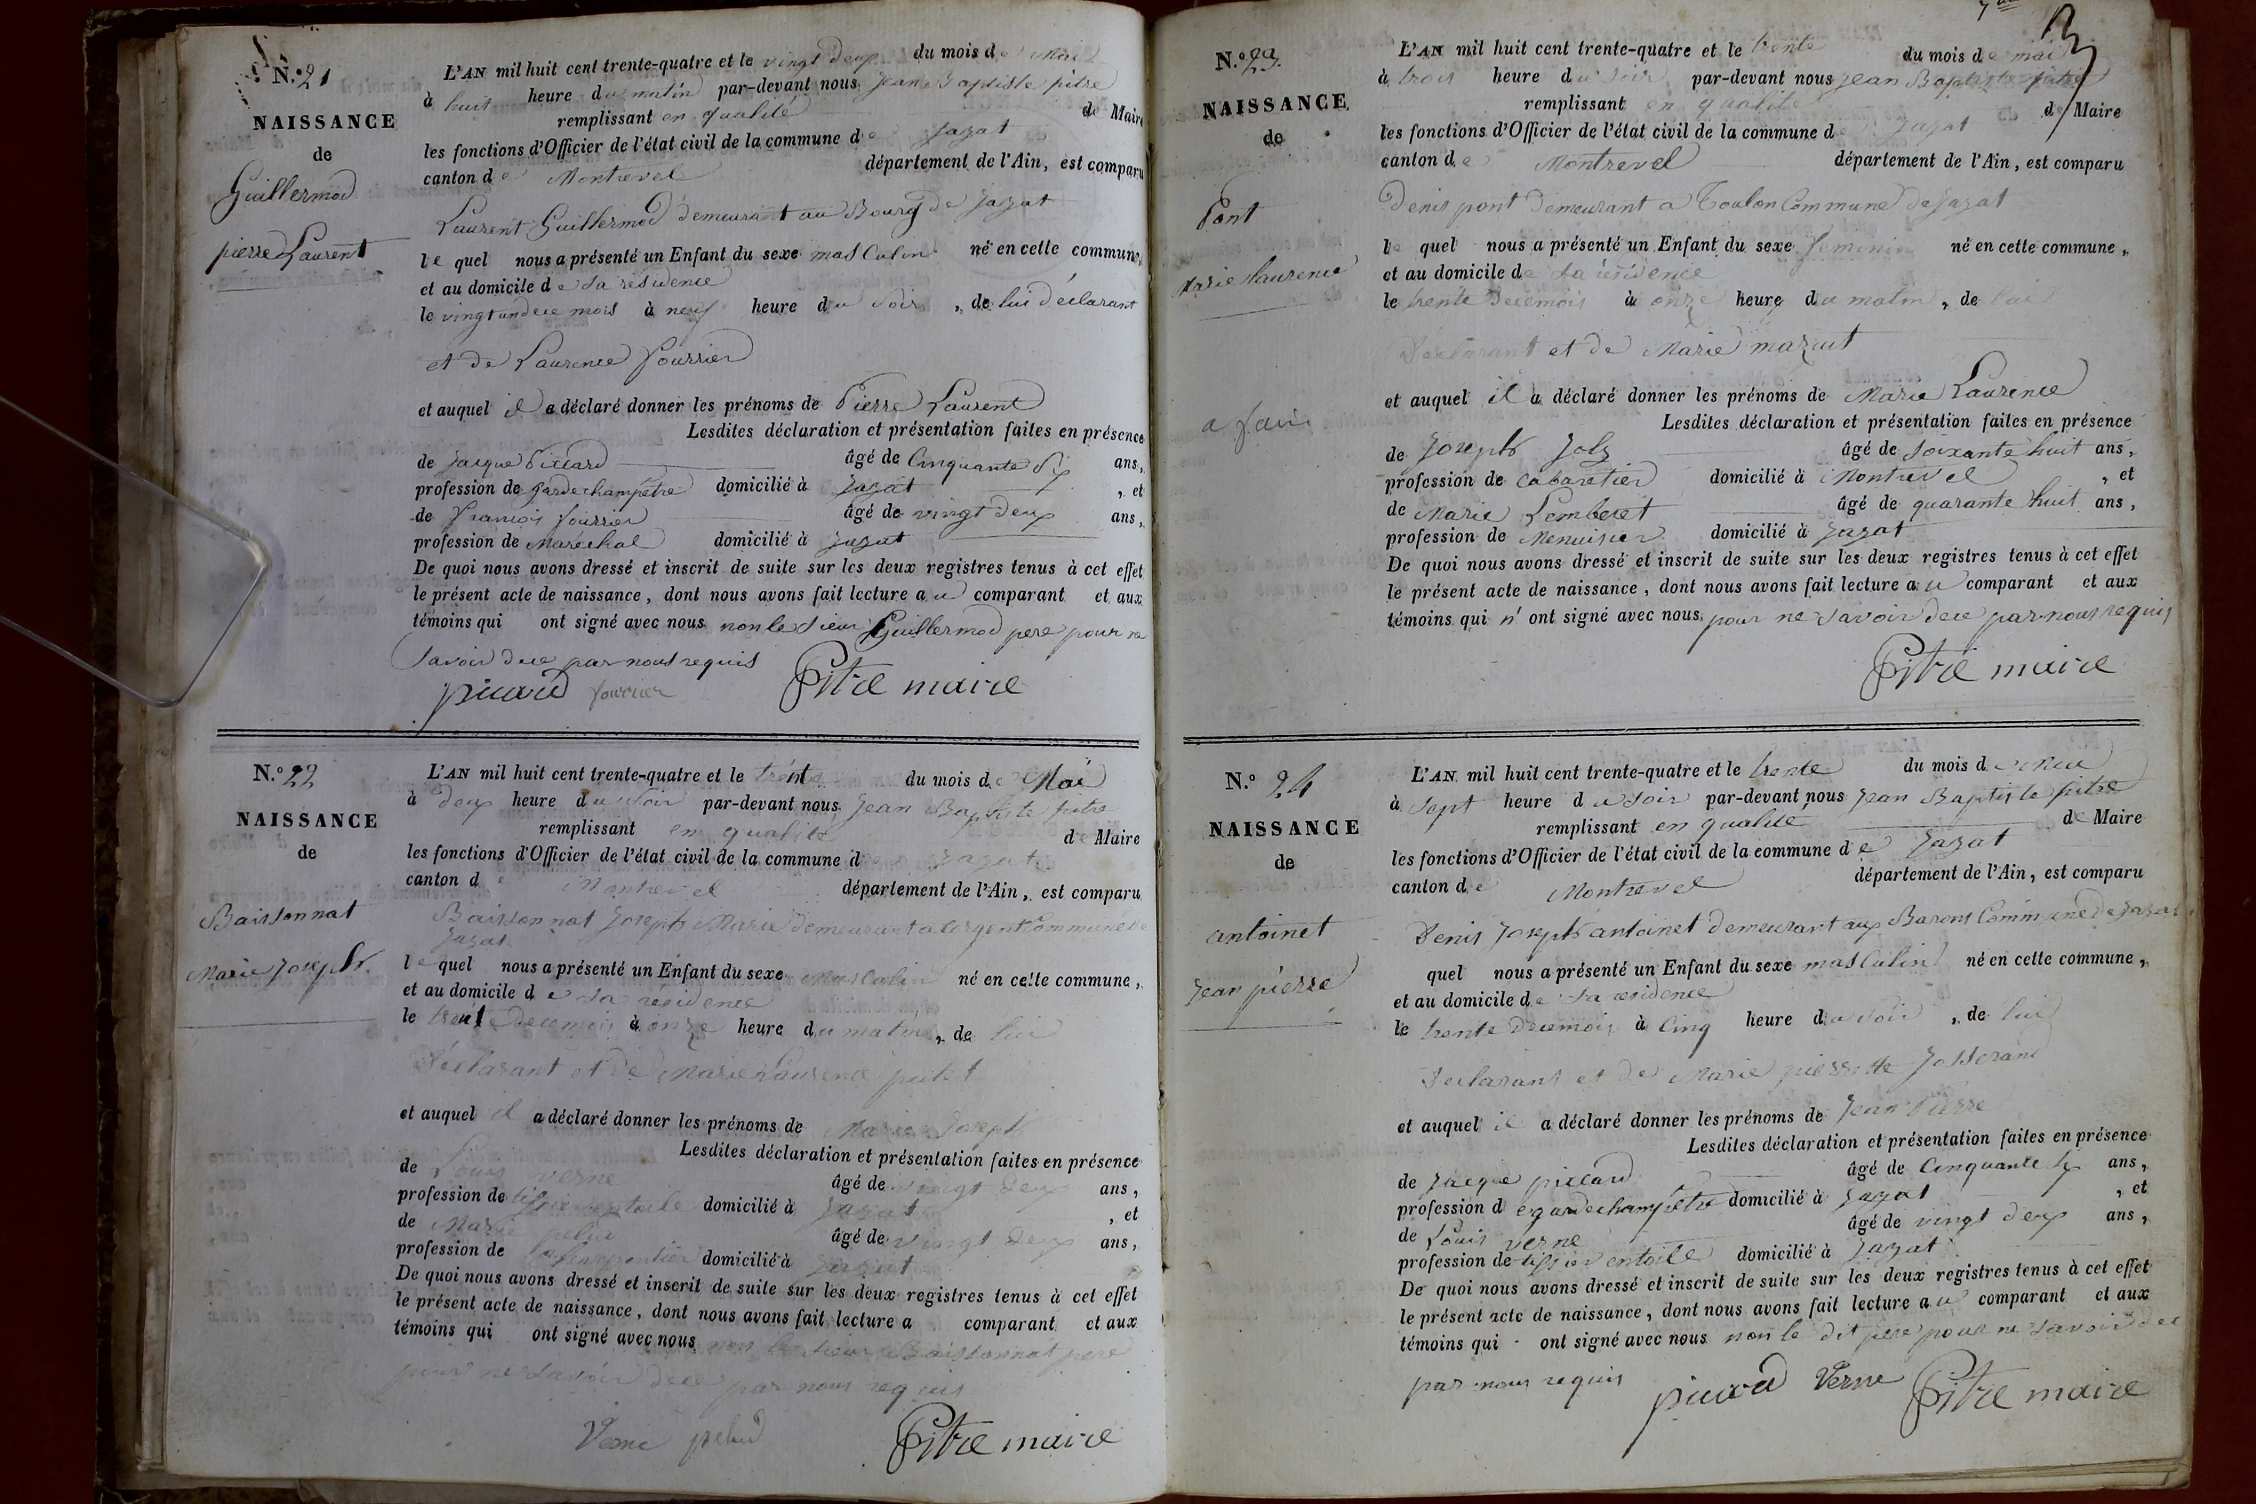 N.° 21
NAISSANCE
de
Guillermod
pierre Laurent
L'AN mil huit cent trente-quatre et le vingt deux du mois de Mai
à huit heure du matin par-devant nous jean Baptiste pitre
remplissant en qualité de Maire
les fonctions d'Officier de l'état civil de la commune de Jayat
canton de Montrevel département de l'Ain, est comparu
Laurent Guillermod demeurant au Bourg de Jayat
le quel nous a présenté un Enfant du sexe masculin né en cette commune,
et au domicile de sa résidence
le vingt un dece mois à neuf heure du soir, de lui déclarant
et de Laurence fourrier
et auquel il a déclaré donner les prénoms de Pierre Laurent
Lesdites déclaration et présentation faites en présence
de Jacque Piccard âgé de Cinquante six ans,
profession de gardechampêtre domicilié à Jayat, et
de françois fourrier âgé de vingt deux ans,
profession de Maréchal domicilié à jayat
De quoi nous avons dressé et inscrit de suite sur les deux registres tenus à cet effet
le présent acte de naissance, dont nous avons fait lecture au comparant et aux
témoins qui ont signé avec nous non le sieur Guillermod pere pour ne
savoir dece par nous requis
picard fourrier Pitre maire
N.° 22
NAISSANCE
de
Baissonnat
Marie Joseph
L'AN mil huit cent trente-quatre et le trente du mois de Mai
à deux heure du soir par-devant nous Jean Baptiste pitre
remplissant en qualité de Maire
les fonctions d'Officier de l'état civil de la commune de Jayat
canton de Montrevel département de l'Ain, est comparu
Baissonnat Joseph Marie demeurant a Commune de
Jayat
le quel nous a présenté un Enfant du sexe Masculin né en cette commune,
et au domicile de sa résidence
le trente decemois à onze heure du matin, de lui
Déclarant et de Marie Laurence
et auquel il a déclaré donner les prénoms de Marie Joseph
Lesdites déclaration et présentation faites en présence
de Louis verne âgé de vingt deux ans,
profession de domicilié à Jayat, et
de Marie pelud âgé de vingt deux ans,
profession de charpentier domicilié à jayat
De quoi nous avons dressé et inscrit de suite sur les deux registres tenus à cet effet
le présent acte de naissance, dont nous avons fait lecture a comparant et aux
témoins qui ont signé avec nous non le sieur Baissonnat pere
pour ne savoir dece par nous requis
Verne pelud Pitre maire
N.° 23.
NAISSANCE
de
Pont
Marie Laurence
L'AN mil huit cent trente-quatre et le trente du mois de mai
à trois heure du soir par-devant nous jean Baptiste pitre
remplissant en qualité de Maire
les fonctions d'Officier de l'état civil de la commune d Jayat
canton de Montrevel département de l'Ain, est comparu
Denis pont Demeurant a Toulon Commune de Jayat
le quel nous a présenté un Enfant du sexe feminin né en cette commune,
et au domicile de sa résidence
le trente decemois à onze heure du matin, de lui
Déclarant et de Marie mazuit
et auquel il a déclaré donner les prénoms de Marie Laurence
Lesdites déclaration et présentation faites en présence
de Joseph Joly âgé de soixante huit ans,
profession de cabaretier domicilié à Montrevel, et
de Marie Lemberet âgé de quarante huit ans,
profession de Menuisier domicilié à Jayat
De quoi nous avons dressé et inscrit de suite sur les deux registres tenus à cet effet
le présent acte de naissance, dont nous avons fait lecture au comparant et aux
témoins qui n' ont signé avec nous, pour ne savoir dece par nous requis
Pitre maire
N.° 24
NAISSANCE
de
antoinet
Jean pierre
L'AN mil huit cent trente-quatre et le trente du mois de mai
à sept heure du soir par-devant nous Jean Baptiste pitre
remplissant en qualité de Maire
les fonctions d'Officier de l'état civil de la commune de Jayat
canton de Montrevel département de l'Ain, est comparu
Denis Joseph antoinet demeurant aux Barons Commune de Jayat
quel nous a présenté un Enfant du sexe masculin né en cette commune,
et au domicile de sa residence
le trente decemois à Cinq heure du soir, de lui
Déclarant et de Marie pierrette Josserand
et auquel il a déclaré donner les prénoms de Jean Pierre
Lesdites déclaration et présentation faites en présence
de Jacque piccard âgé de Cinquante six ans,
profession de gardechampêtre domicilié à Jayat, et
de Louis verne âgé de vingt deux ans,
profession de tissier en toile domicilié à Jayat
De quoi nous avons dressé et inscrit de suite sur les deux registres tenus à cet effet
le présent acte de naissance, dont nous avons fait lecture au comparant et aux
témoins qui ont signé avec nous non le dit pere pour ne savoir dece
par nous requis picard Verne Pitre maire